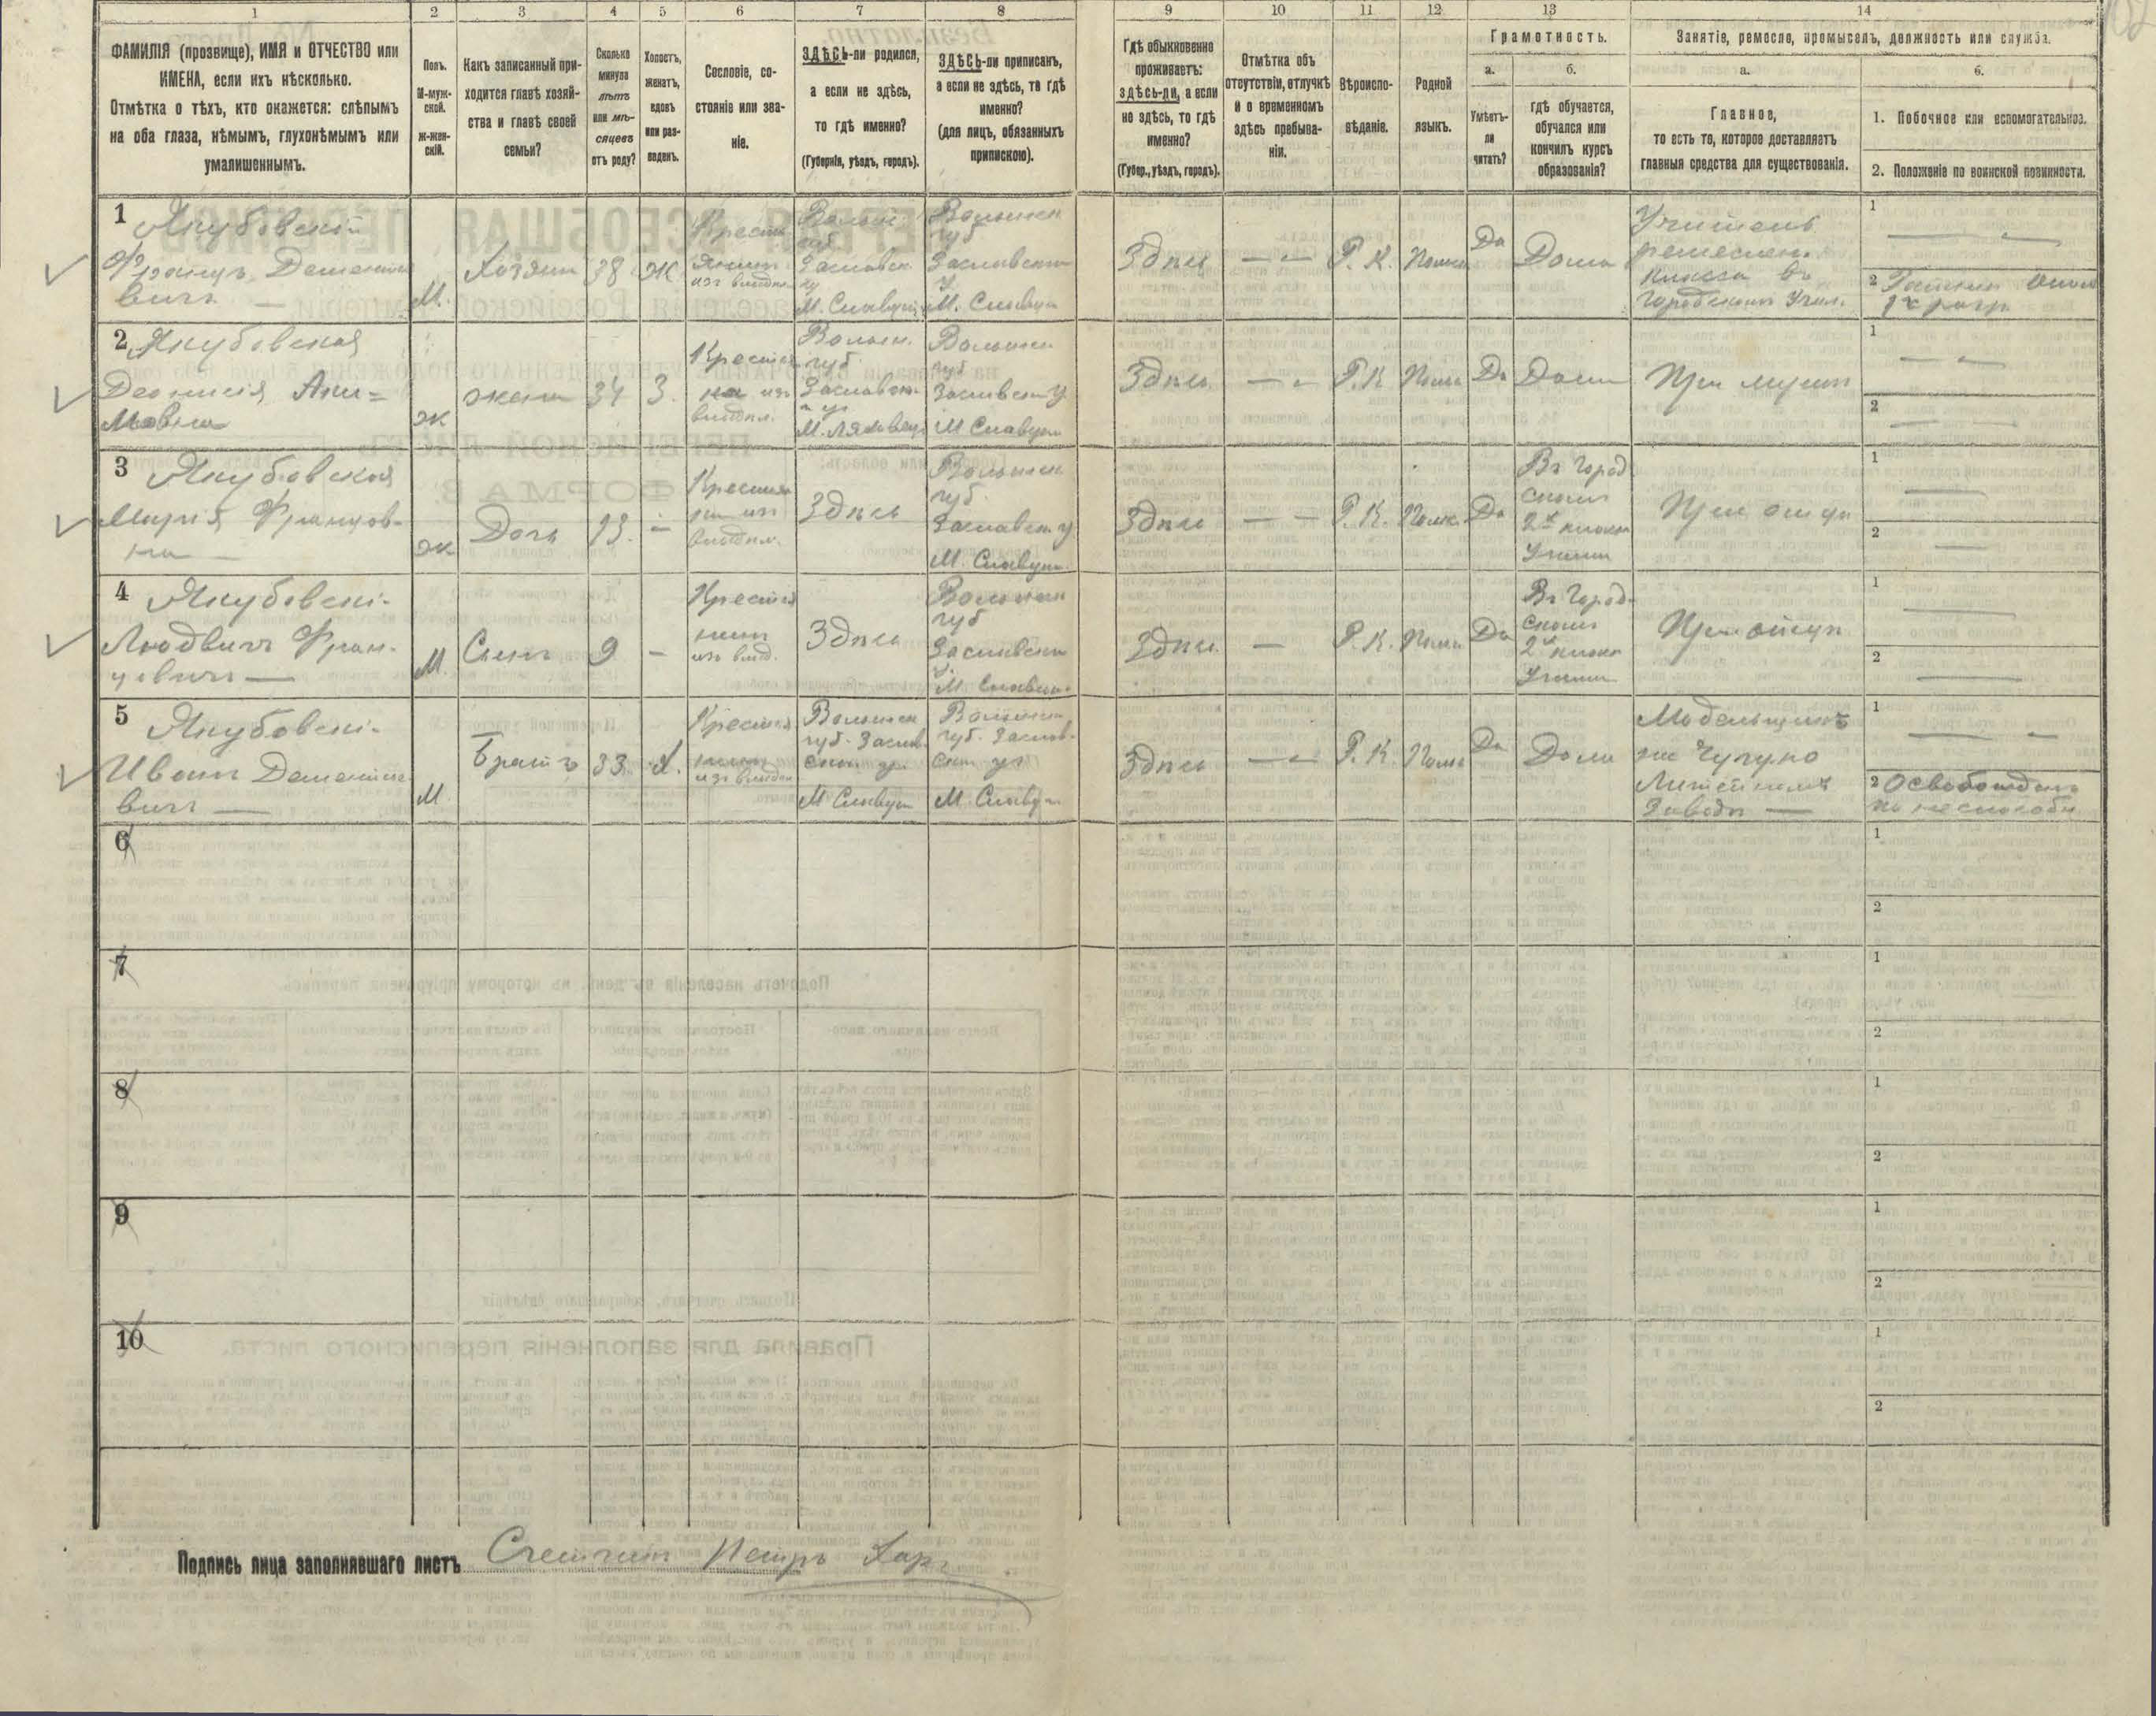 1 2 3 4 5 6 7 8 9 10 11 12 13 14
ФАМИЛІЯ (прозвище), ИМЯ и ОТЧЕСТВО или
ИМЕНА, если ихъ нѣсколько.
Отмѣтка о тѣхъ, кто окажется: слѣпымъ
на оба глаза, нѣмымъ, глухонѣмымъ или
умалишеннымъ.
Полъ.
М-муж-
ской.
Ж-жен-
скій.
Какъ записанный при-
ходится главѣ хозяй-
ства и главѣ своей
семьи?
Сколько
минуло
лѣтъ
или мѣ-
сяцевъ
отъ роду?
Холостъ,
женатъ,
вдовъ
или раз-
веденъ.
Сословіе, со-
стояніе или зва-
ніе.
ЗДѢСЬ-ли родился,
а если не здѣсь,
то гдѣ именно?
(Губернія, уѣздъ, городъ).
ЗДѢСЬ-ли приписанъ,
а если не здѣсь, то гдѣ
именно?
(для лицъ, обязанныхъ
припискою).
Гдѣ обыкновенно
проживаетъ:
здѣсь-ли, а если
не здѣсь, то гдѣ
именно?
(Губер., уѣздъ, городъ).
Отмѣтка объ
отсутствіи, отлучкѣ
и о временномъ
здѣсь пребыва-
ніи.
Вѣроиспо-
вѣданіе.
Родной
языкъ.
Грамотность.
а.
Умѣетъ-
ли
читать?
б.
гдѣ обучается,
обучался или
кончилъ курсъ
образованія?
Занятіе, ремесло, промыселъ, должность или служба.
а.
Главное,
то есть то, которое доставляетъ
главныя средства для существованія.
б.
1. Побочное или вспомогательное.
2. Положеніе по воинской повинности.
1 Якубовскій
Францъ Дементіе
вичъ —
М.
Хозяинъ
38
Ж
Крестья
янинъ
изъ владѣл.
Волын.
губ
Заславск.
у
М. Славута
Волынск
губ
Заславскаго
у.
М. Славута
Здѣсь
— —
Р. К.
Польск
Да
Дома
Учитель
ремеслен.
класса въ
Городскомъ Учил.
1 — "
2
1го разр.
2 Якубовская
Деонисія
Ж
жена
34
З.
Крестья
ка изъ
владѣл.
Волын.
губ.
Заславск.
у
М. Ляховцы
Волынск
губ
Заславскаго у
М Славута
Здѣсь
— "
Р. К
Польс
Да
Дома
При мужѣ
1 — "
2 — —
3 Якубовская
Марія Францов-
на —
Ж
Дочь
13.
—
Крестья
ка изъ
владѣл.
Здѣсь
Волынск
губ.
Заславск у
М. Славута
Здѣсь
— —
Р. К.
Польс.
Да
Въ Город
скомъ
2х класн
Училищ
При отцѣ
1 —
2 —
4 Якубовскі-
Людвигъ Фран-
цевичъ —
М
Сынъ
9
—
Крестья
нинъ
изъ влад.
Здѣсь
Волынск
губ
Заславскаго
у.
М. Славута
Здѣсь
—
Р. К.
Польс
Да
Въ Город-
скомъ
2х класн
Училищ
При отцѣ
1 —
2 —
5 Якубовскі-
Иванъ Дементіе
вичъ —
М.
Братъ
33.
Х.
Крестья
нинъ
изъ владѣл
Волынск
губ. Заслав
скаго у.
М Славута
Волынск
губ. Заслав-
скаго у
М. Славута
Здѣсь
— "
Р. К
Польс
Да
Дома
Модельщикъ
на Чугуно
Литейномъ
Заводѣ —
1 — —
2 Освобожденъ
по неспособн
6 1
2
7 1
2
8 1
2
9 1
2
10 1
2
Подпись лица заполнявшаго листъ Счетчикъ Петръ